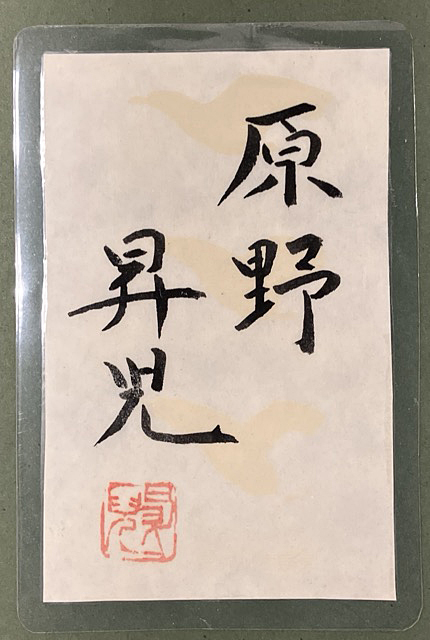 原野
昇児